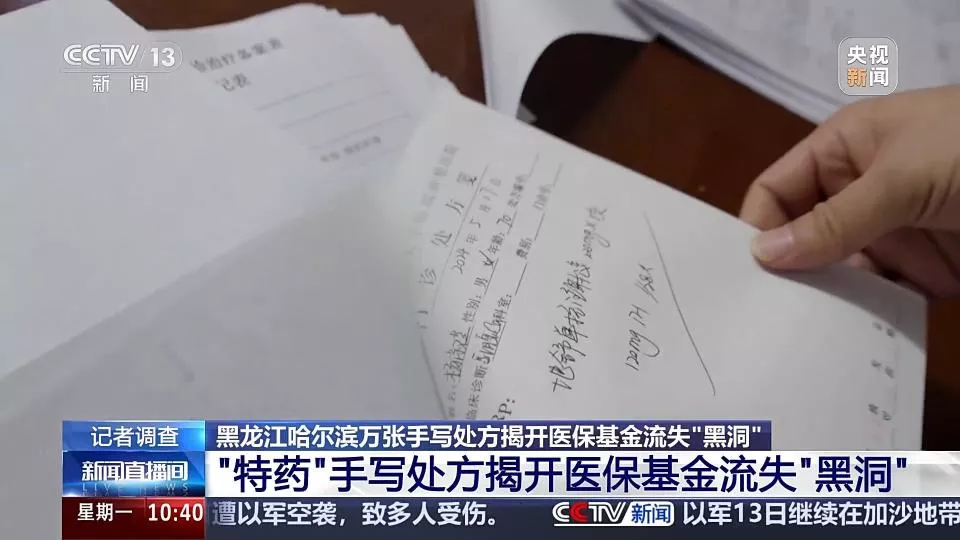 CCTV 13
新闻
央视
新闻
记表
门诊处方笺
2024年5月17日
性别:男 女 年龄:70
科室:
费别:
临床诊断
RP:
地舒单抗注射液 120mg
120mg iH
记者调查
黑龙江哈尔滨万张手写处方揭开医保基金流失"黑洞"
新闻直播间
LIVE NEWS
"特药"手写处方揭开医保基金流失"黑洞"
星期一 10:40 遭以军空袭，致多人受伤。 CCTV新闻 以军13日继续在加沙地带